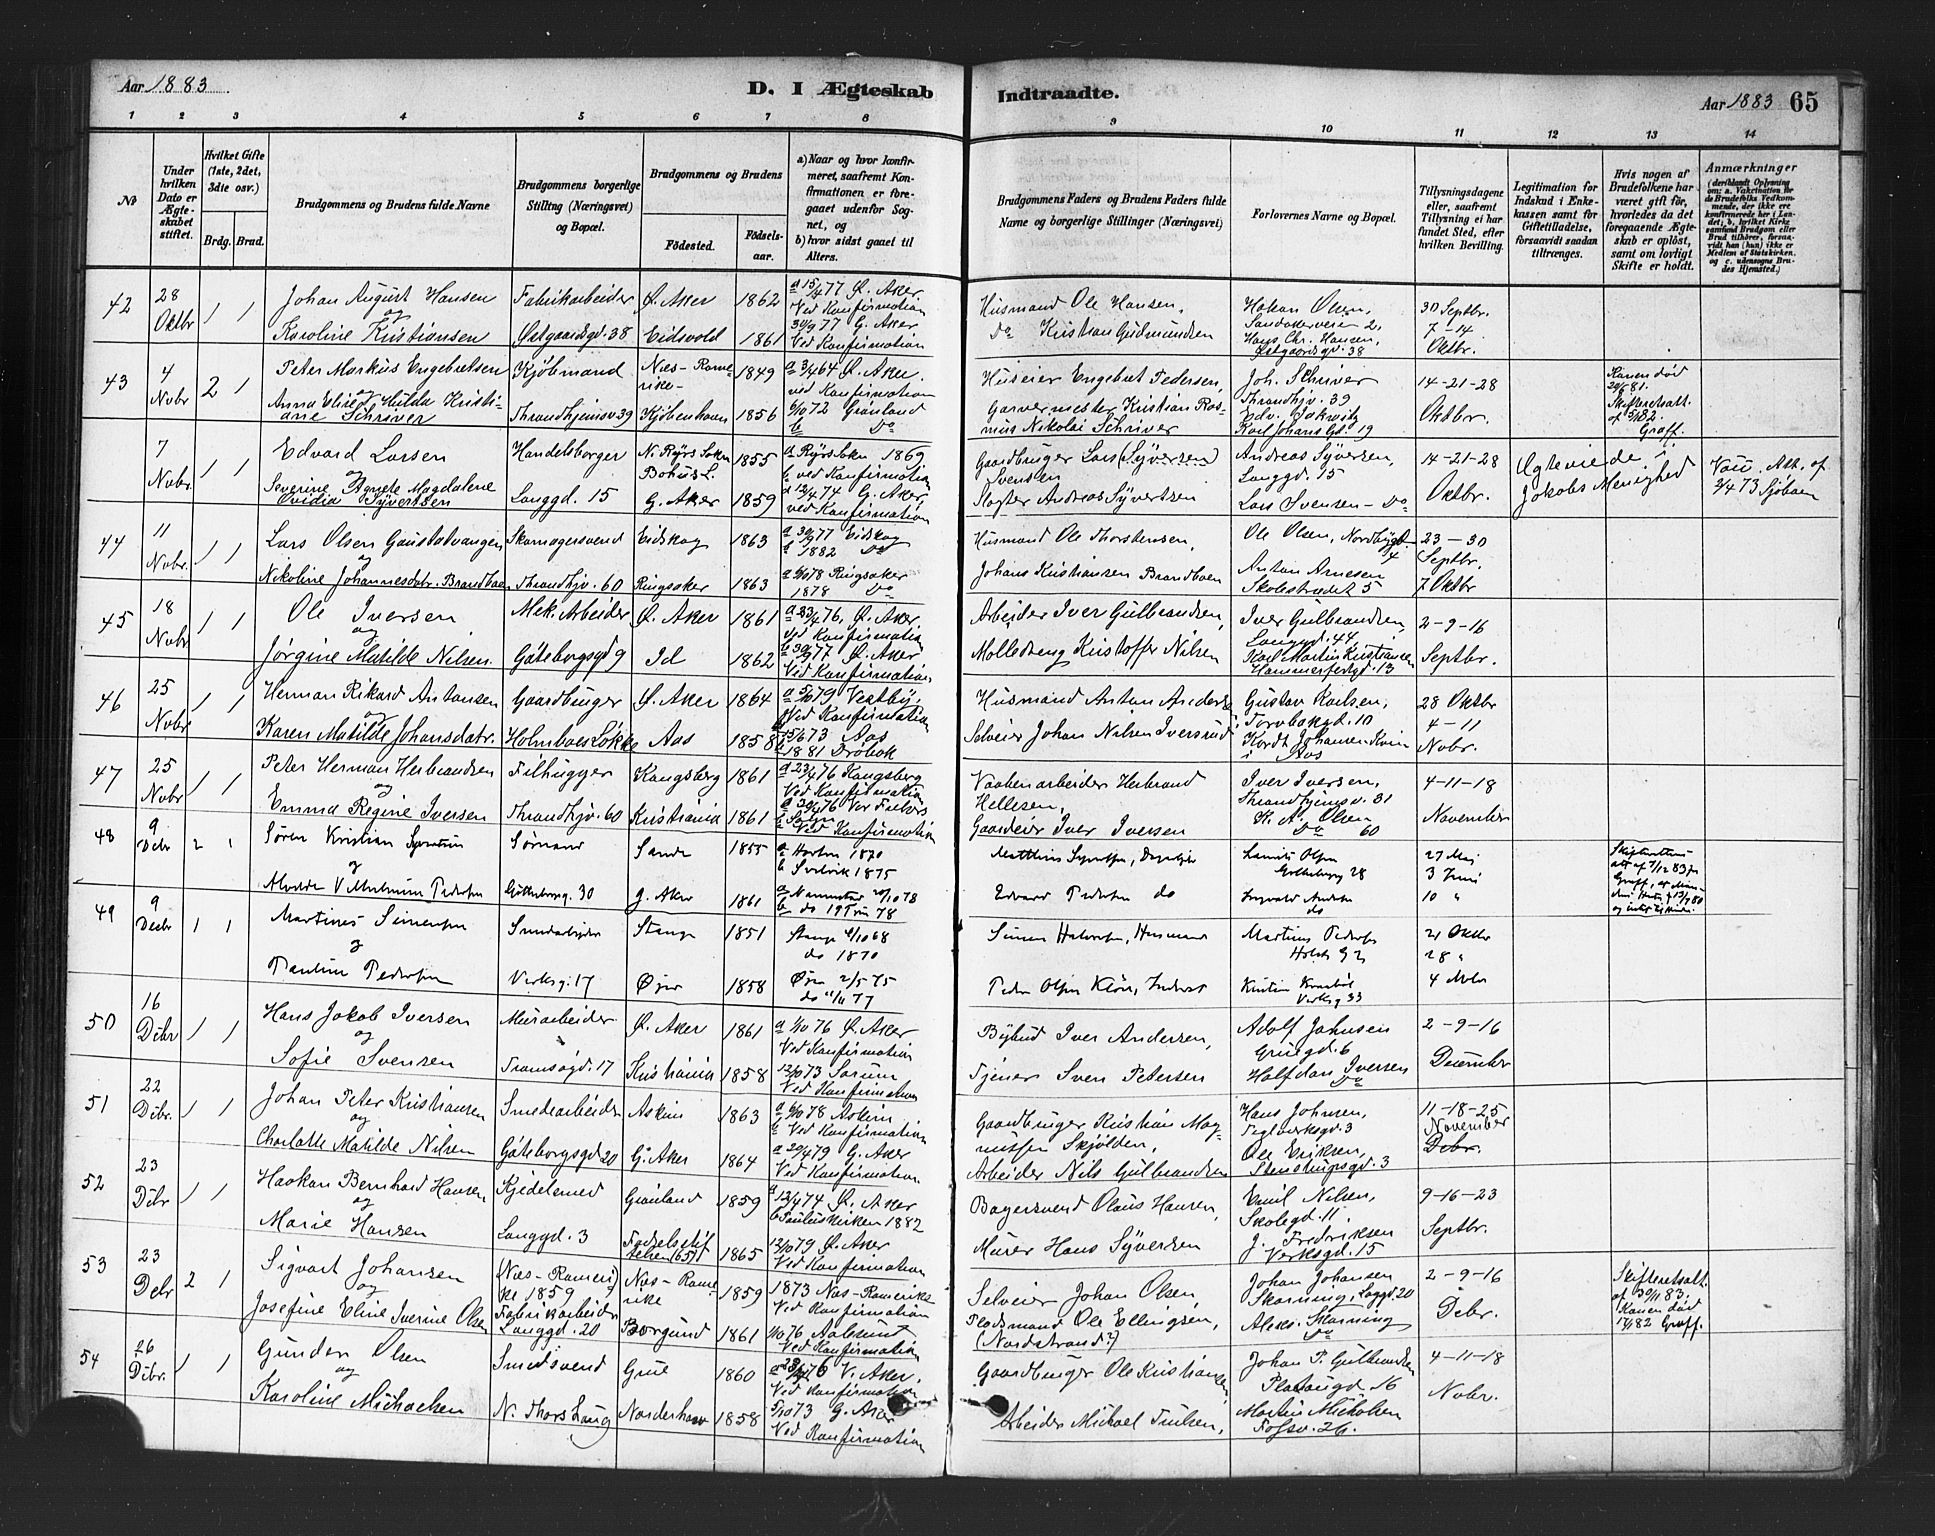 Aar 1883.
D. I Ægteskab
Indtraadte.
Aar 1883 65
1 2 3 4 5 6 7 8 9 10 11 12 13 14
No
Under hvilken Dato er Ægteskabet stiftet.
Hvilket Gifte (1ste, 2det, 3die osv.)
Brdg. Brud.
Brudgommens og Brudens fulde Navne
Brudgommens borgerlige Stilling (Næringsvei) og Bopæl.
Brudgommens og Brudens
Fødested. Fødselsaar.
a) Naar og hvor konfirmeret, saafremt Konfirmationen er foregaaet udenfor Sognet, og
b) hvor sidst gaaet til Alters.
Brudgommens Faders og Brudens Faders fulde Navne og borgerlige Stillinger (Næringsvei)
Forlovernes Navne og Bopæl.
Tillysningsdagene eller, saafremt Tillysning ei har fundet Sted, efter hvilken Bevilling.
Legitimation for Indskud i Enkekassen samt for Giftetilladelse, forsaavidt saadan tiltrænges.
Hvis nogen af Brudefolkene har været gift før, hvorledes da det foregaaende Ægteskab er opløst, samt om lovligt Skifte er holdt.
Anmærkninger
42 28 Oktbr 1 1 Johan August Hansen Fabrikarbeider Ø. Aker 1862 a 15/4 77 Ø. Aker Ved Konfirmation Husmand Ole Hansen, Hakan Olsen, Sandakerveien 2, 30 Septbr.
og
Karoline Kristiansen Østgaardsgd. 38 Eidsvold 1861 30/9 77 G. Aker Ved Konfirmation Do Kristian Gudmundsen Hans Chr. Hansen, Østgaardsgd. 38 7-14 Oktbr.
43 4 Novbr 2 1 Peter Markus Engebretsen Kjøbmand Næs-Romerike- 1849 a 3/4 64 Ø. Aker. ved Konfirmation Huseier Engebret Pedersen, Joh. Schriver Thrandhjv. 39 14-21-28 Konen død 20/9 81. Skifteretsatt.
og
Anna Elise Hilda Kristiane Schriver Thrandhjemsv 39 Kjøbenhavn 1856 6/10 72 Grønland b Do Garvermester Kristian Rasmus Nikolai Schriver Edv. Jakwitz Karl Johans Gd. 19 Oktbr. af 5/1 82. Graff.
7 Novbr. 1 1 Edvard Larsen Handelsborger N. Ryrs Sokn Bohus L. 1855 a Ryrs Sokn 1869 b ved Konfirmation Gaardbruger Lars (Syversen) Svensen Andreas Syversen, Langgd. 15 14-21-28 Ægteviede i Jakobs Menighed Vacc. Att. af 3/4 73 Sjöboen
og
Severine Agnete Magdalene Ovidia Syvertsen Langgd. 15 G. Aker 1859 a 12/4 74 G. Aker, ved Konfirmation Sloffer Andreas Syvertsen Lars Svensen - Do Oktbr.
44 11 Novbr. 1 1 Lars Olsen Gaustatvangen Skomagersvend Eidskog 1863 a 30/9 77 Eidskog b 1882 Do Husmand Ole Thorstensen, Ole Olsen, Nordbygd. 4 23-30 Septbr.
og
Nikoline Johannesdatr. Brandboen Thrandhjv. 60 Ringsaker 1863 a 6/10 78 Ringsaker 1878 Do Johans Kristiansen Brandboen Anton Arnesen Skolestrædet 5 7 Oktbr
45 18 Novbr 1 1 Ole Iversen Mek. Arbeider Ø. Aker 1861 a 23/4 76, Ø. Aker, Ved Konfirmation Arbeider Iver Gulbrandsen, Iver Gulbrandsen, Langgd. 44 2-9-16
og
Jørgine Matilde Nilsen. Göteborgsgd 9 Id 1862 b 30/9 77 Ø. Aker Ved Konfirmation Mølledreng Kristoffer Nilsen Karl Martin Kristiansen Hammerfestgd. 13 Septbr.
46 25 Novbr 1 1 Herman Rikard Antonsen Gaardbruger Ø. Aker 1864 a 5/10 79 Vestby, Ved Konfirmation Husmand Anton Anders Gustav Karlsen, Torvbakgd. 10 28 Oktbr
og
Karen Matilde Johansdatr. Holmboes Løkke Aas 1858 a 15/6 73 Aas b 1881 Drøbak Selveier Johan Nilsen Iversrud Kordt Johansen i Aas 4-11 Novbr.
47 25 Novbr 1 1 Peter Herman Herbrandsen Filhugger Kongsberg 1861 a 23/4 76 Kongsberg Ved Konfirmation Vaabenarbeider Herbrand Hellesen, Iver Iversen, Thrandhjemsv. 31 4-11-18
og
Emma Regine Iversen Thrandhjv. 60 Kristiania 1861 Ved Konfirmation Gaardeier Iver Iversen K. A. Olsen Do 60 November
48 9 Debr 2 1 Søren Kristian Syvertsen Sømand Sande 1855 a Horten 1870 b Svelvik 1875 Matthias Syvertsen, Lauritz Olsen Gøtheborg 28 27 Mai
og
Alvilde Vilhelmine Pedersen Gøtheborg. 30 G. Aker 1861 20/10 78 b do 78 Edvard Pedersen do do 3 Juni 10 "
49 9 Decbr 1 1 Martines Simensen Smedarbeider Stange 1851 Stange 4/10 68 do 1870 Simen Halvorsen, Husmand Martinus Pedersen Holsts G 2 21 Oktbr 28 "
og
Pauline Pedersen Verksg. 17 Øyer 1858 Øyer 2/5 75 do 11/11 77 Peder Olsen Kristian Verksg 33 4 Nvbr
50 16 Debr 1 1 Hans Jakob Iversen Murarbeider Ø. Aker 1861 a 1/10 76 Ø. Aker Ved Konfirmation Bybud Iver Andersen, Adolf Johnsen Gruegd. 6 2-9-16
og
Sofie Svensen Tromsøgd. 17 Kristiania 1858 12/10 73 Sørum Ved Konfirmation Tjener Sven Petersen Halfdan Iversen Do December
51 22 Debr. 1 1 Johan Peter Kristiansen Smedearbeider Askim 1863 a 6/10 78 Askim b Ved Konfirmation Gaardbruger Kristian Magnussen Skjølden, Hans Johnsen, Teglverksgd. 3 11-18-25 November
og
Charlotte Matilde Nilsen Göteborgsgd 20 G. Aker 1864 a 20/4 79 G. Aker Ved Konfirmation Arbeider Nils Gulbrandsen Ole Eriksen, Stenstrupsgd. 3 Debr.
52 23 Debr 1 1 Haakon Bernhard Hansen Kjedelsmed Grønland 1859 a 12/4 74 Ø. Aker b Pauluskirken 1882 Bagersvend Olaus Hansen, Emil Nilsen, Skolegd. 11, 9-16-23
og
Marie Hansen Langgd. 3 Fødselsstiftelsen (65) 1865 12/10 79 Ø. Aker Ved Konfirmation Murer Hans Syversen J. Fredriksen Verksgd. 15 Septbr.
53 23 Debr 2 1 Sigvart Johansen (Næs-Romerike 1859) Fabrikarbeider Næs-Romerike 1859 1873 Næs-Romerike Ved Konfirmation Selveier Johan Olsen, Johan Johansen Skorning, Laggd. 20 2-9-16 Skifteretsatt. af 30/11 83.
og
Josefine Eline Iverine Olsen Langgd. 20 Borgund 1861 1/10 76 Aalesund Ved Konfirmation Flodsmand Ole Ellingsen, (Nordstrand?) Aleks. Skorning Do Debr. Konen død 17/1 82 Graff.
54 26 Debr. 1 1 Gunder Olsen Smedsvend Grue 1860 a 23/4 76 V. Aker. Ved Konfirmation Gaardbruger Ole Kristiansen Johan P. Gulbrandsen Platougd. 16 4-11-18
og
Karoline Michaelsen N. Thorshaug Norderhov 1858 5/10 73 G. Aker Ved Konfirmation Arbeider Michael Trulsen, Martin Mickelsen Fossv. 26. Novbr.